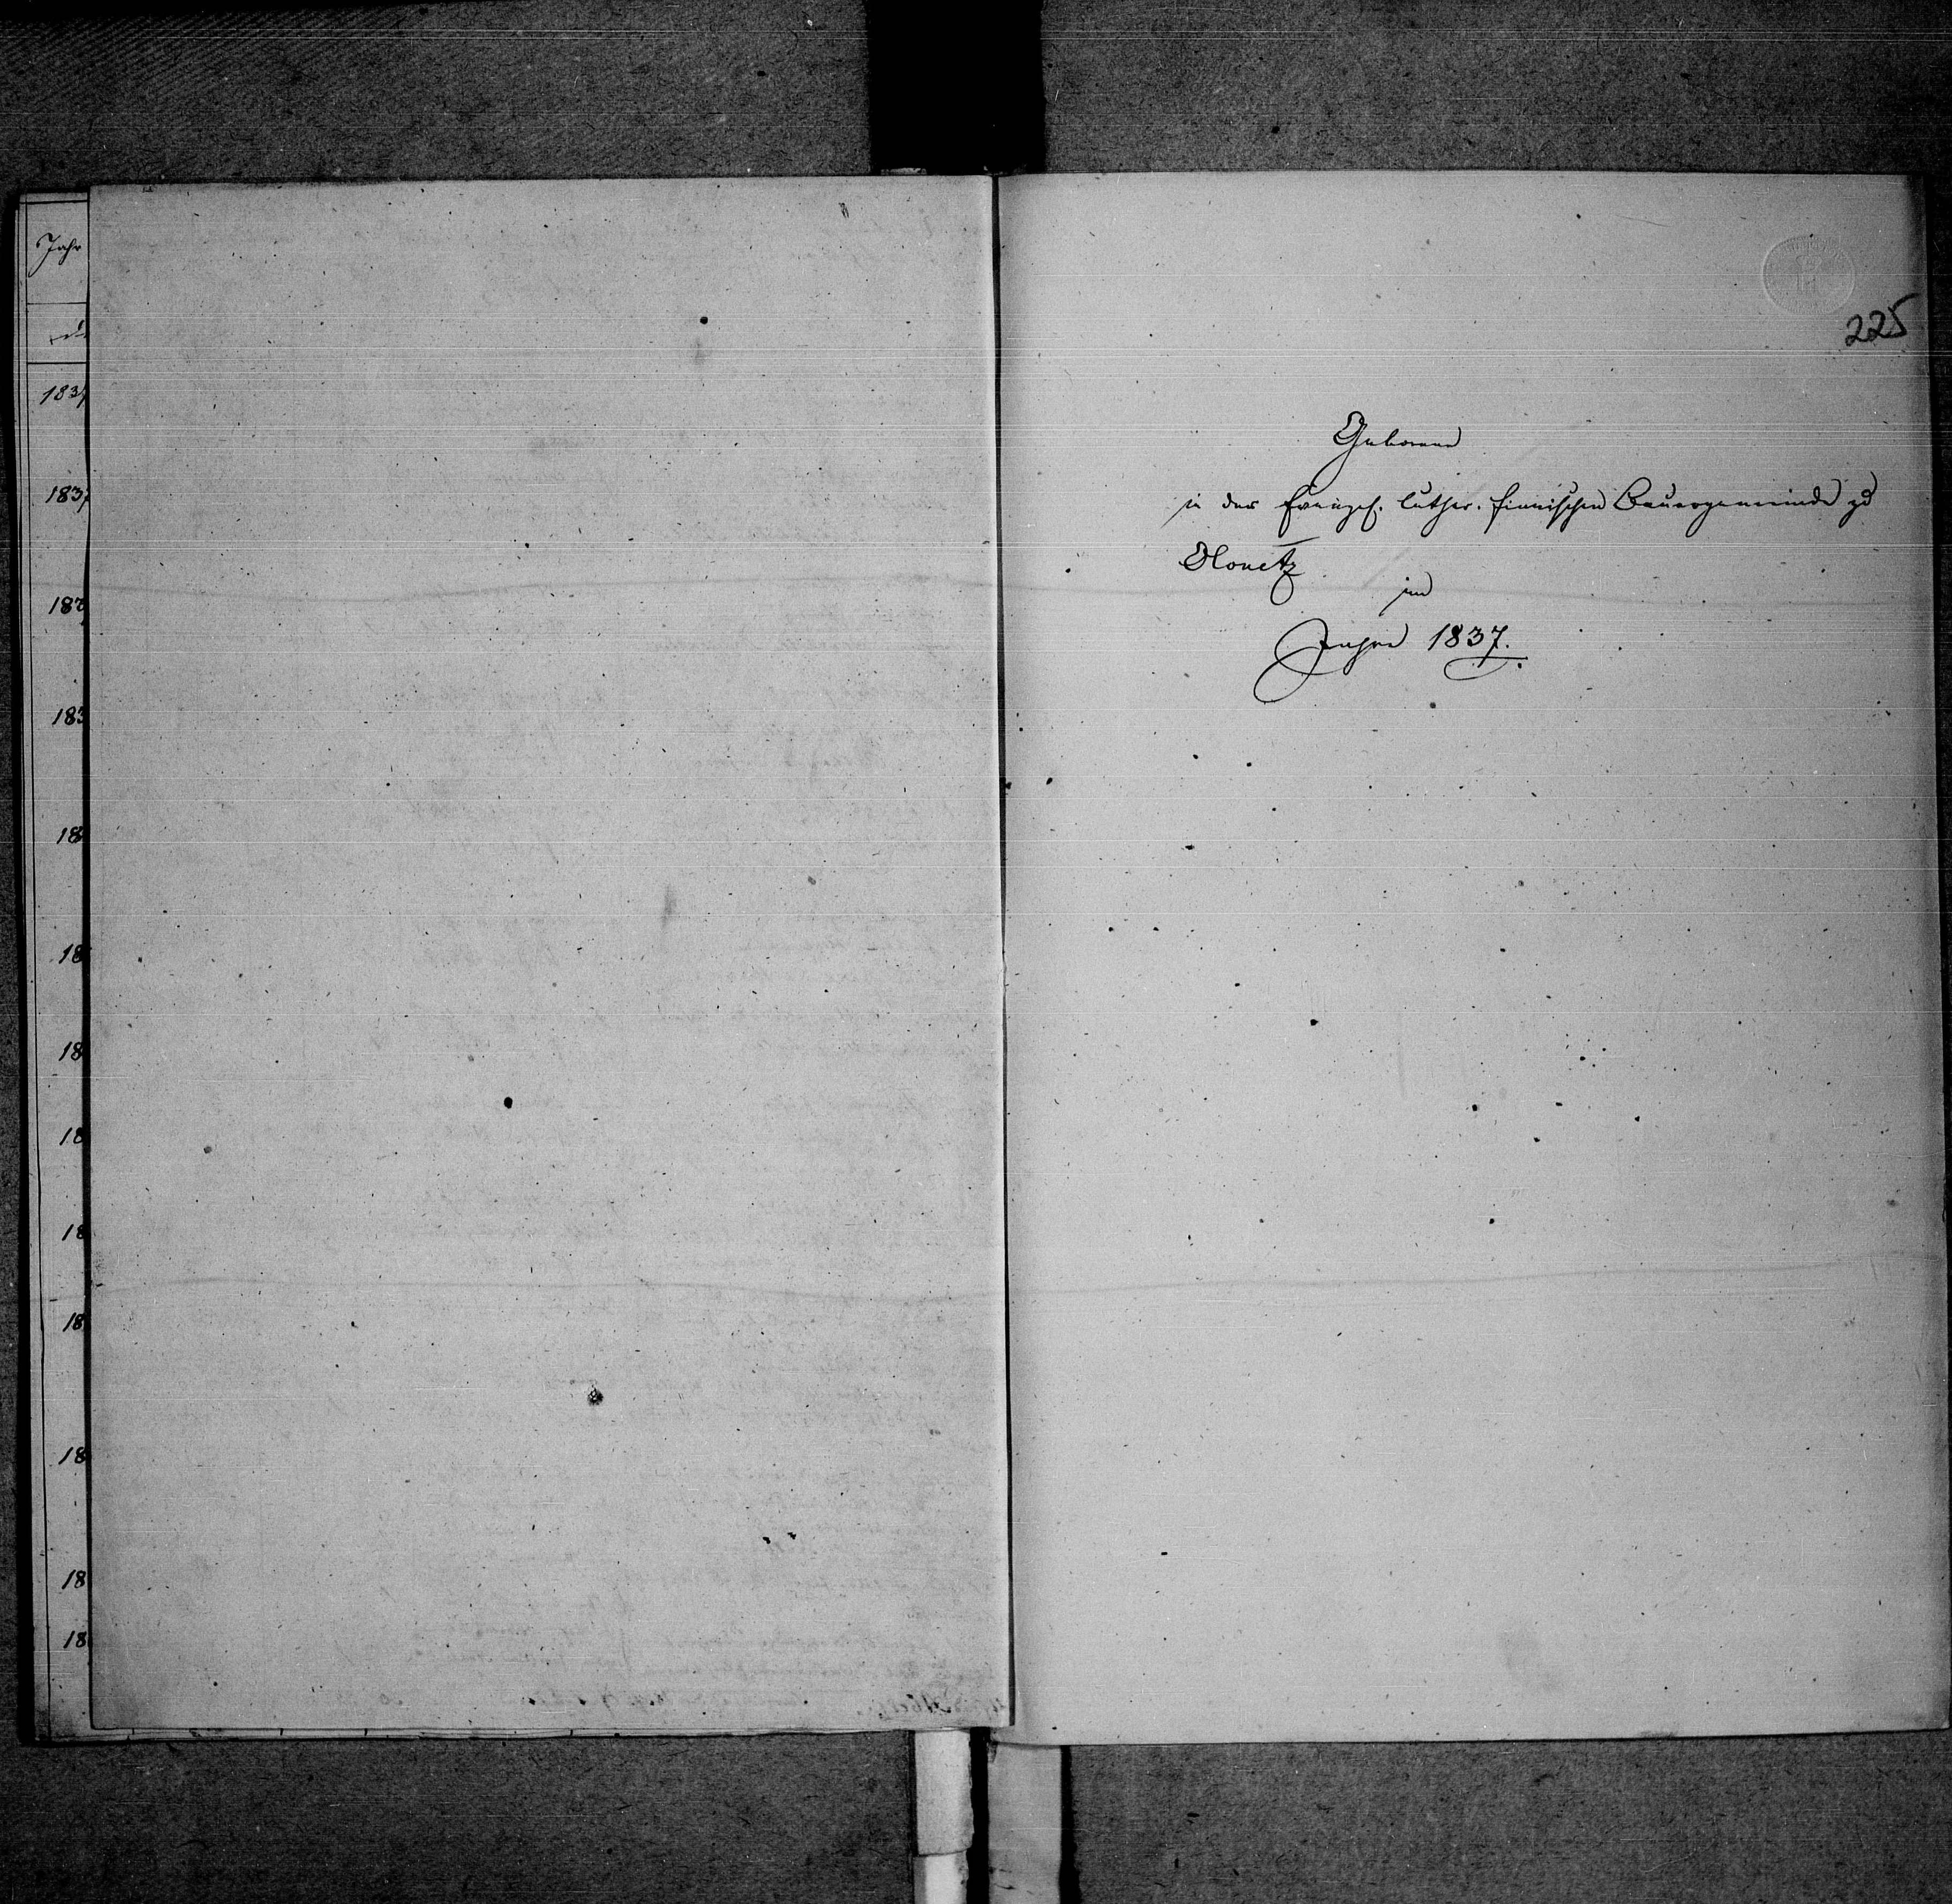 Jahr
1837
1837
183
183
18
18
18
18
18
18
18
18
18
225
Geborene
in der Evangel. luther. finnischen Bauergemeinde zu
Olonetz
im
Jahre 1837.